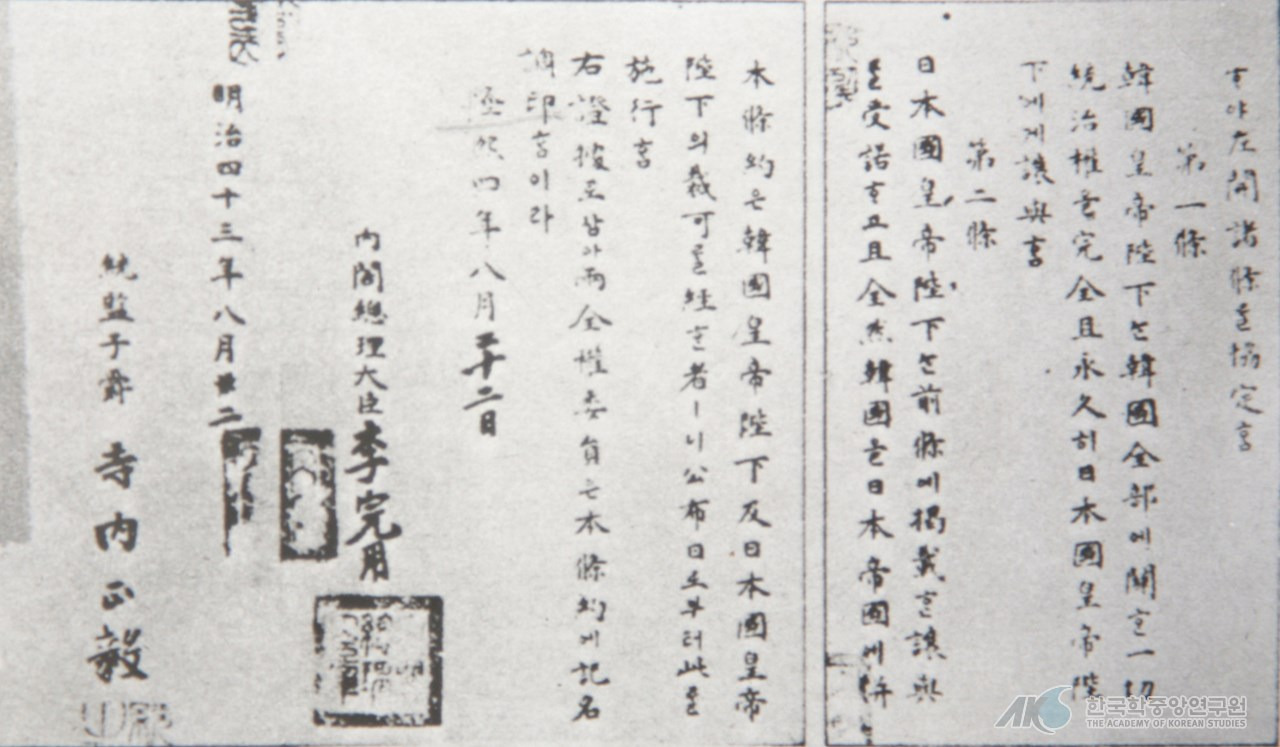 ᄒᆞ야左開諸條를協定홈
第一條
韓國皇帝陛下ᄂᆞᆫ韓國全部에關ᄒᆞᆫ一切
統治權을完全且永久히日本國皇帝陛
下에게讓與홈
第二條
日本國皇帝陛下ᄂᆞᆫ前條에揭載ᄒᆞᆫ讓與
를受諾ᄒᆞ고且全然韓國을日本帝國에倂
本條約은韓國皇帝陛下及日本國皇帝
陛下의裁可를經ᄒᆞᆫ者ㅣ니公布日로부터此를
施行홈
右證據로삼아兩全權委員은本條約에記名
調印홈이라
隆熙四年八月二十二日
內閣總理大臣 李完用
明治四十三年八月廿二
統監子爵 寺內正毅
한국학중앙연구원
THE ACADEMY OF KOREAN STUDIES